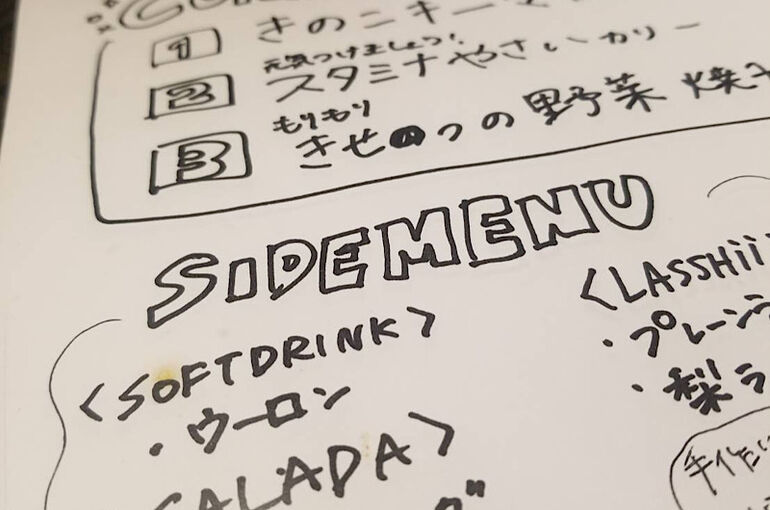 1 きのこキーマ
元気つけましょう!
2 スタミナやさいカリー
もりもり
3 きせつの野菜 焼き
SIDEMENU
<SOFTDRINK>
・ウーロン
<LASSHii
・プレーンラ
・梨ラ
SALADA>
手作り